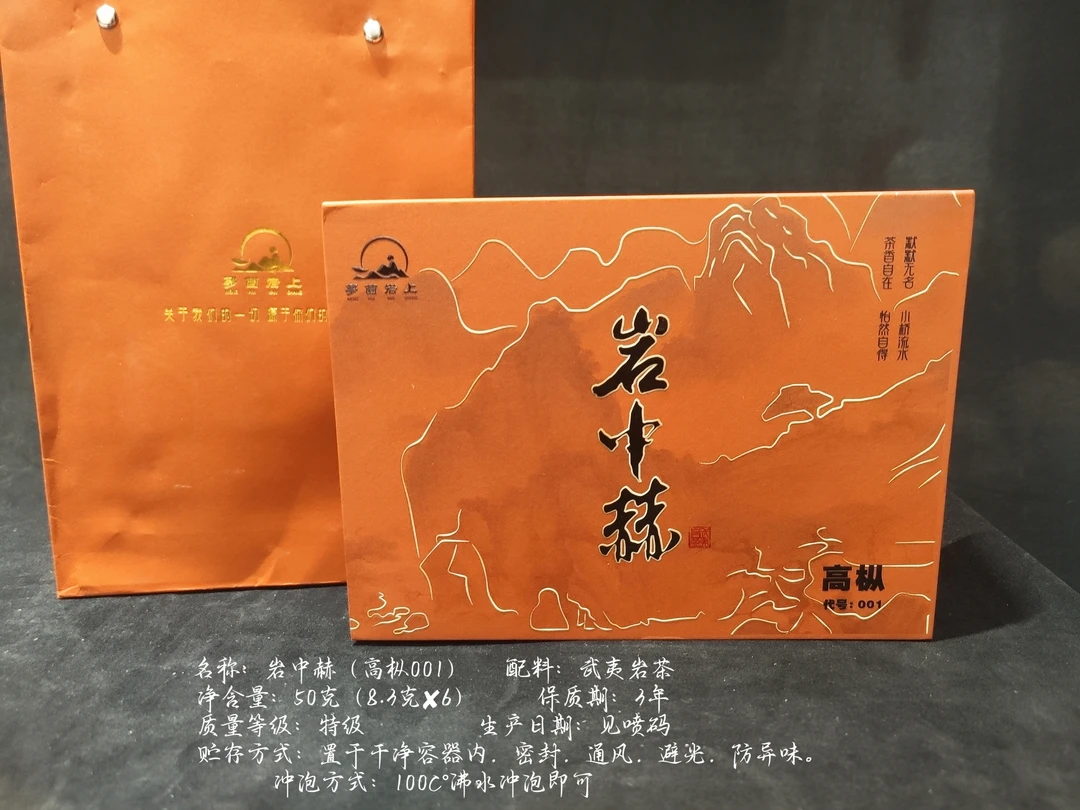 茶香自在
默默无名
怡然自得
小桥流水
岩上
关于我们的一切 源于你们的
岩上
岩中赫
高枞
代号：001
名称：岩中赫（高枞001） 配料：武夷岩茶
净含量：50克（8.3克✖6） 保质期：3年
质量等级：特级 生产日期：见喷码
贮存方式：置于干净容器内．密封．通风．避光．防异味。
冲泡方式：100C°沸水冲泡即可